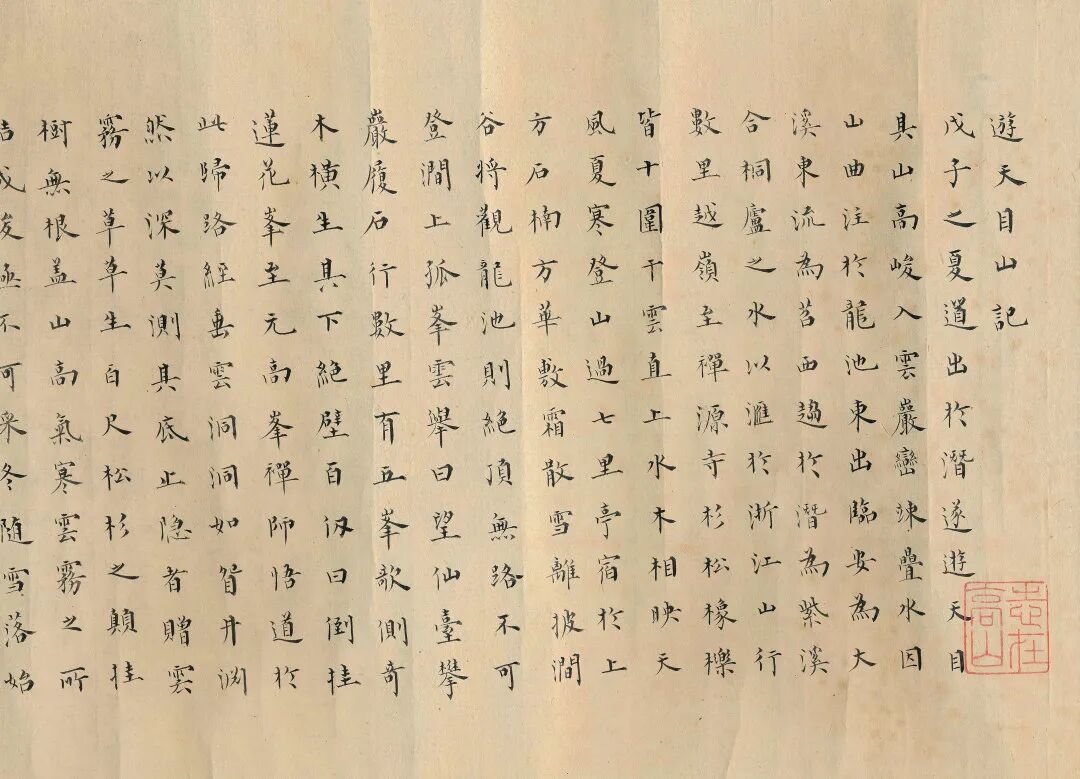 遊天目山記
戊子之夏道出於潛遂遊天目
其山高峻入雲巖巒竦疊水因
山曲注於龍池東出臨安為大
溪東流為苕西趨於潛為紫溪
合桐廬之水以滙於浙江山行
數里越嶺至禪源寺杉松橡櫟
皆十圍干雲直上水木相映天
風夏寒登山過七里亭宿於上
方石楠方華敷霜散雪離披澗
谷將觀龍池則絕頂無路不可
登澗上孤峯雲舉曰望仙臺攀
巖履石行數里有五峯欹側奇
木橫生其下絕壁百仞曰倒挂
蓮花峯至元高峯禪師悟道於
此歸路經垂雲洞洞如眢井淵
然以深莫測其底止隱者贈雲
霧之草草生百尺松杉之顛挂
樹無根盖山高氣寒雲霧之所
結成峻極不可采冬隨雪落始
志在高山